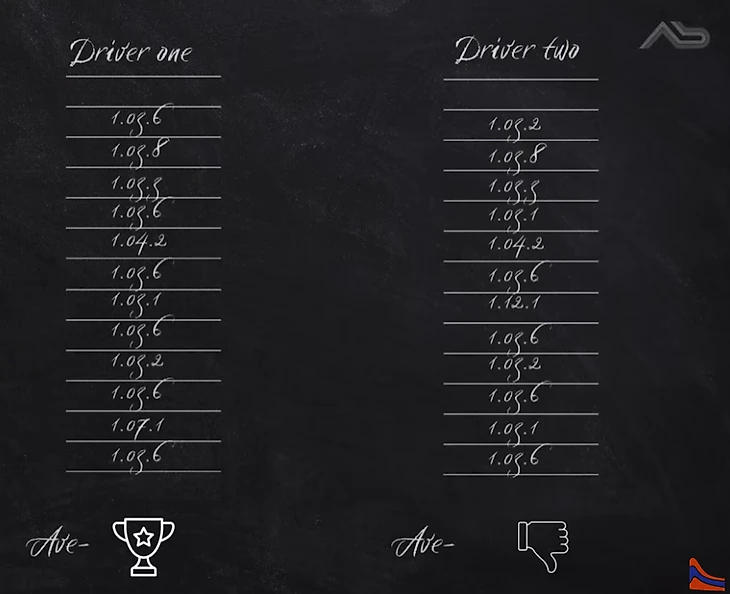 Driver one
1.03.6
1.03.8
1.03.3
1.03.6
1.04.2
1.03.6
1.03.1
1.03.6
1.03.2
1.03.6
1.07.1
1.03.6
Ave-
Driver two
1.03.2
1.03.8
1.03.3
1.03.1
1.04.2
1.03.6
1.12.1
1.03.6
1.03.2
1.03.6
1.03.1
1.03.6
Ave-